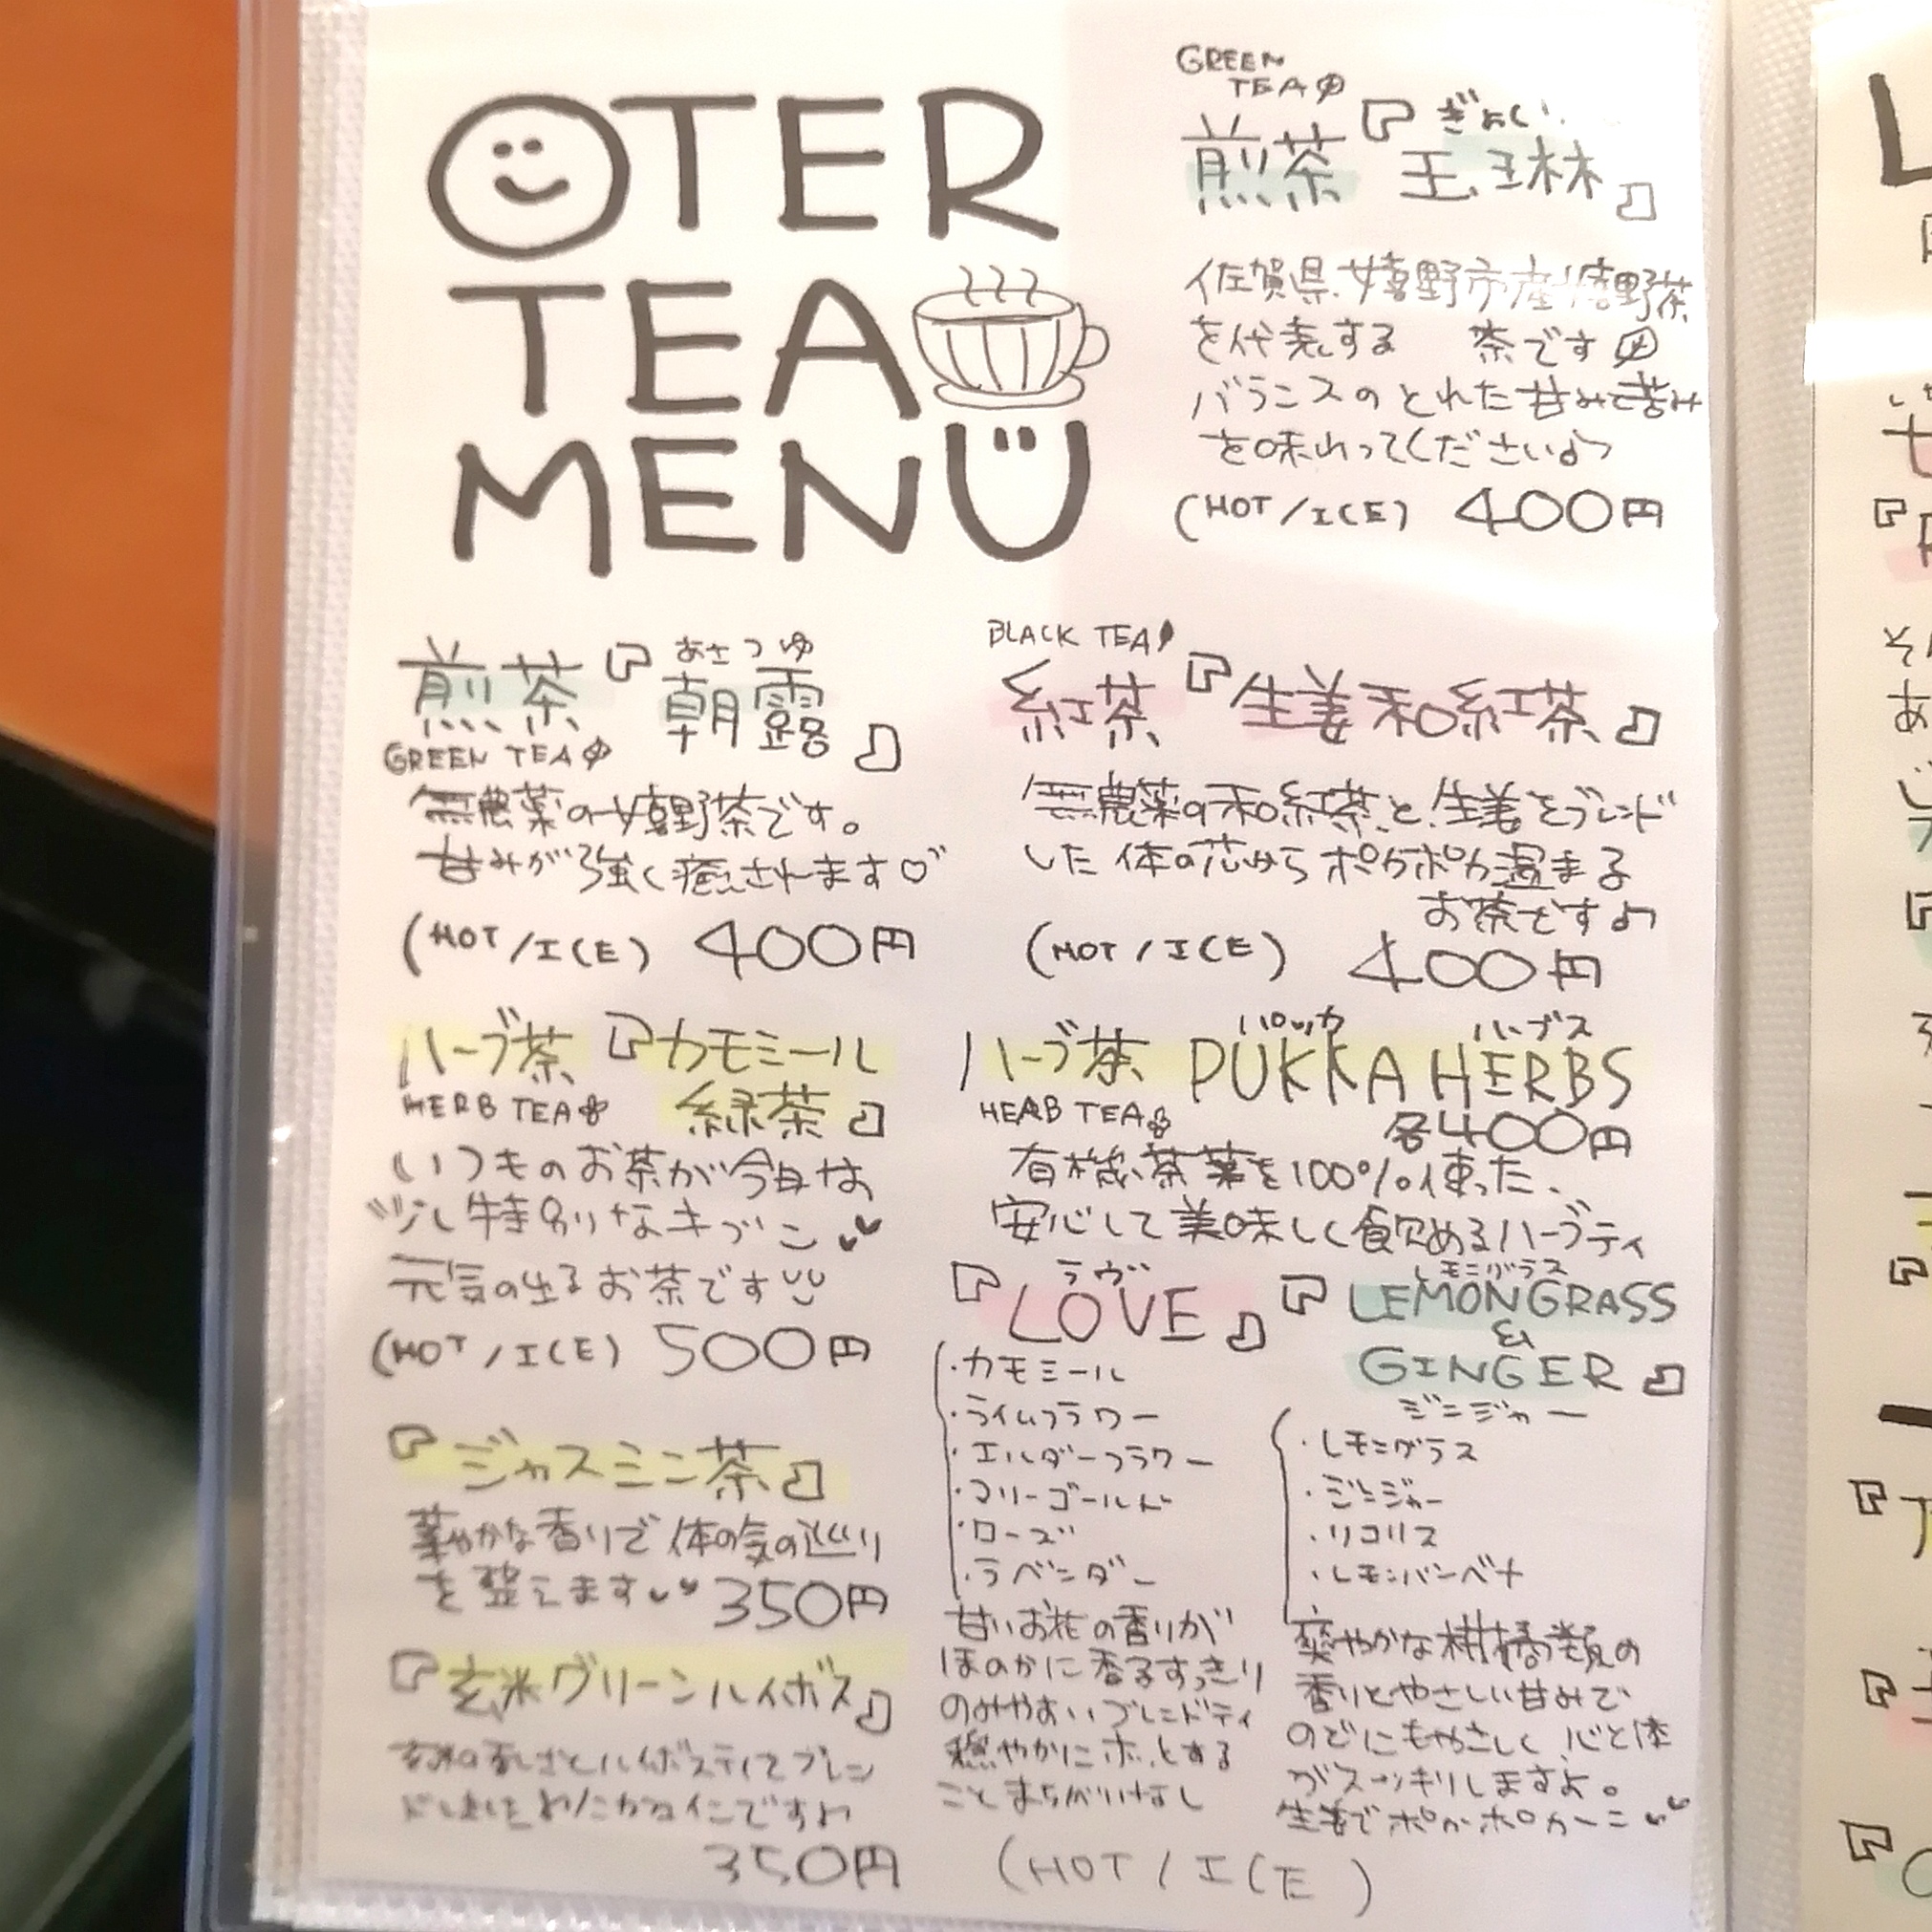 OTER
TEA
MENU
GREEN
TEA
煎茶『玉琳』
佐賀県嬉野市産嬉野茶
を代表する 茶です
バランスのとれた甘みと苦み
を味わってください♪
(HOT/ICE) 400円
あさつゆ
煎茶『朝露』
GREEN TEA
無農薬の嬉野茶です。
甘みが強く癒されます♡
(HOT/ICE) 400円
BLACK TEA
紅茶『生姜和紅茶』
無農薬の和紅茶と生姜をブレンド
した体の芯からポカポカ温まる
お茶です♪
(HOT/ICE) 400円
ハーブ茶『カモミール
HERB TEA 緑茶』
いつものお茶が今日は
少し特別なキブン
元気の出るお茶です
(HOT/ICE) 500円
『ジャスミン茶』
華やかな香りで体の気の巡り
を整えます 350円
『玄米グリーンルイボス』
玄米の香ばしさとルイボスティをブレン
ドしました
350円
パッカ ハーブス
ハーブ茶 PUKKA HERBS
HERB TEA 各400円
有機茶葉を100%使った、
安心して美味しく飲めるハーブティ
ラヴ
『LOVE』
・カモミール
・ライムフラワー
・エルダーフラワー
・マリーゴールド
・ローズ
・ラベンダー
甘いお花の香りが
ほのかに香るすっきり
のみやすいブレンドティ
穏やかにホッとする
ことまちがいなし
レモングラス
『LEMONGRASS
&
GINGER』
ジンジャー
・レモングラス
・ジンジャー
・リコリス
・レモンバーベナ
爽やかな柑橘類の
香りとやさしい甘みで
のどにもやさしく心と体
がスッキリしますよ。
生姜でポカポカーニ
(HOT/ICE)